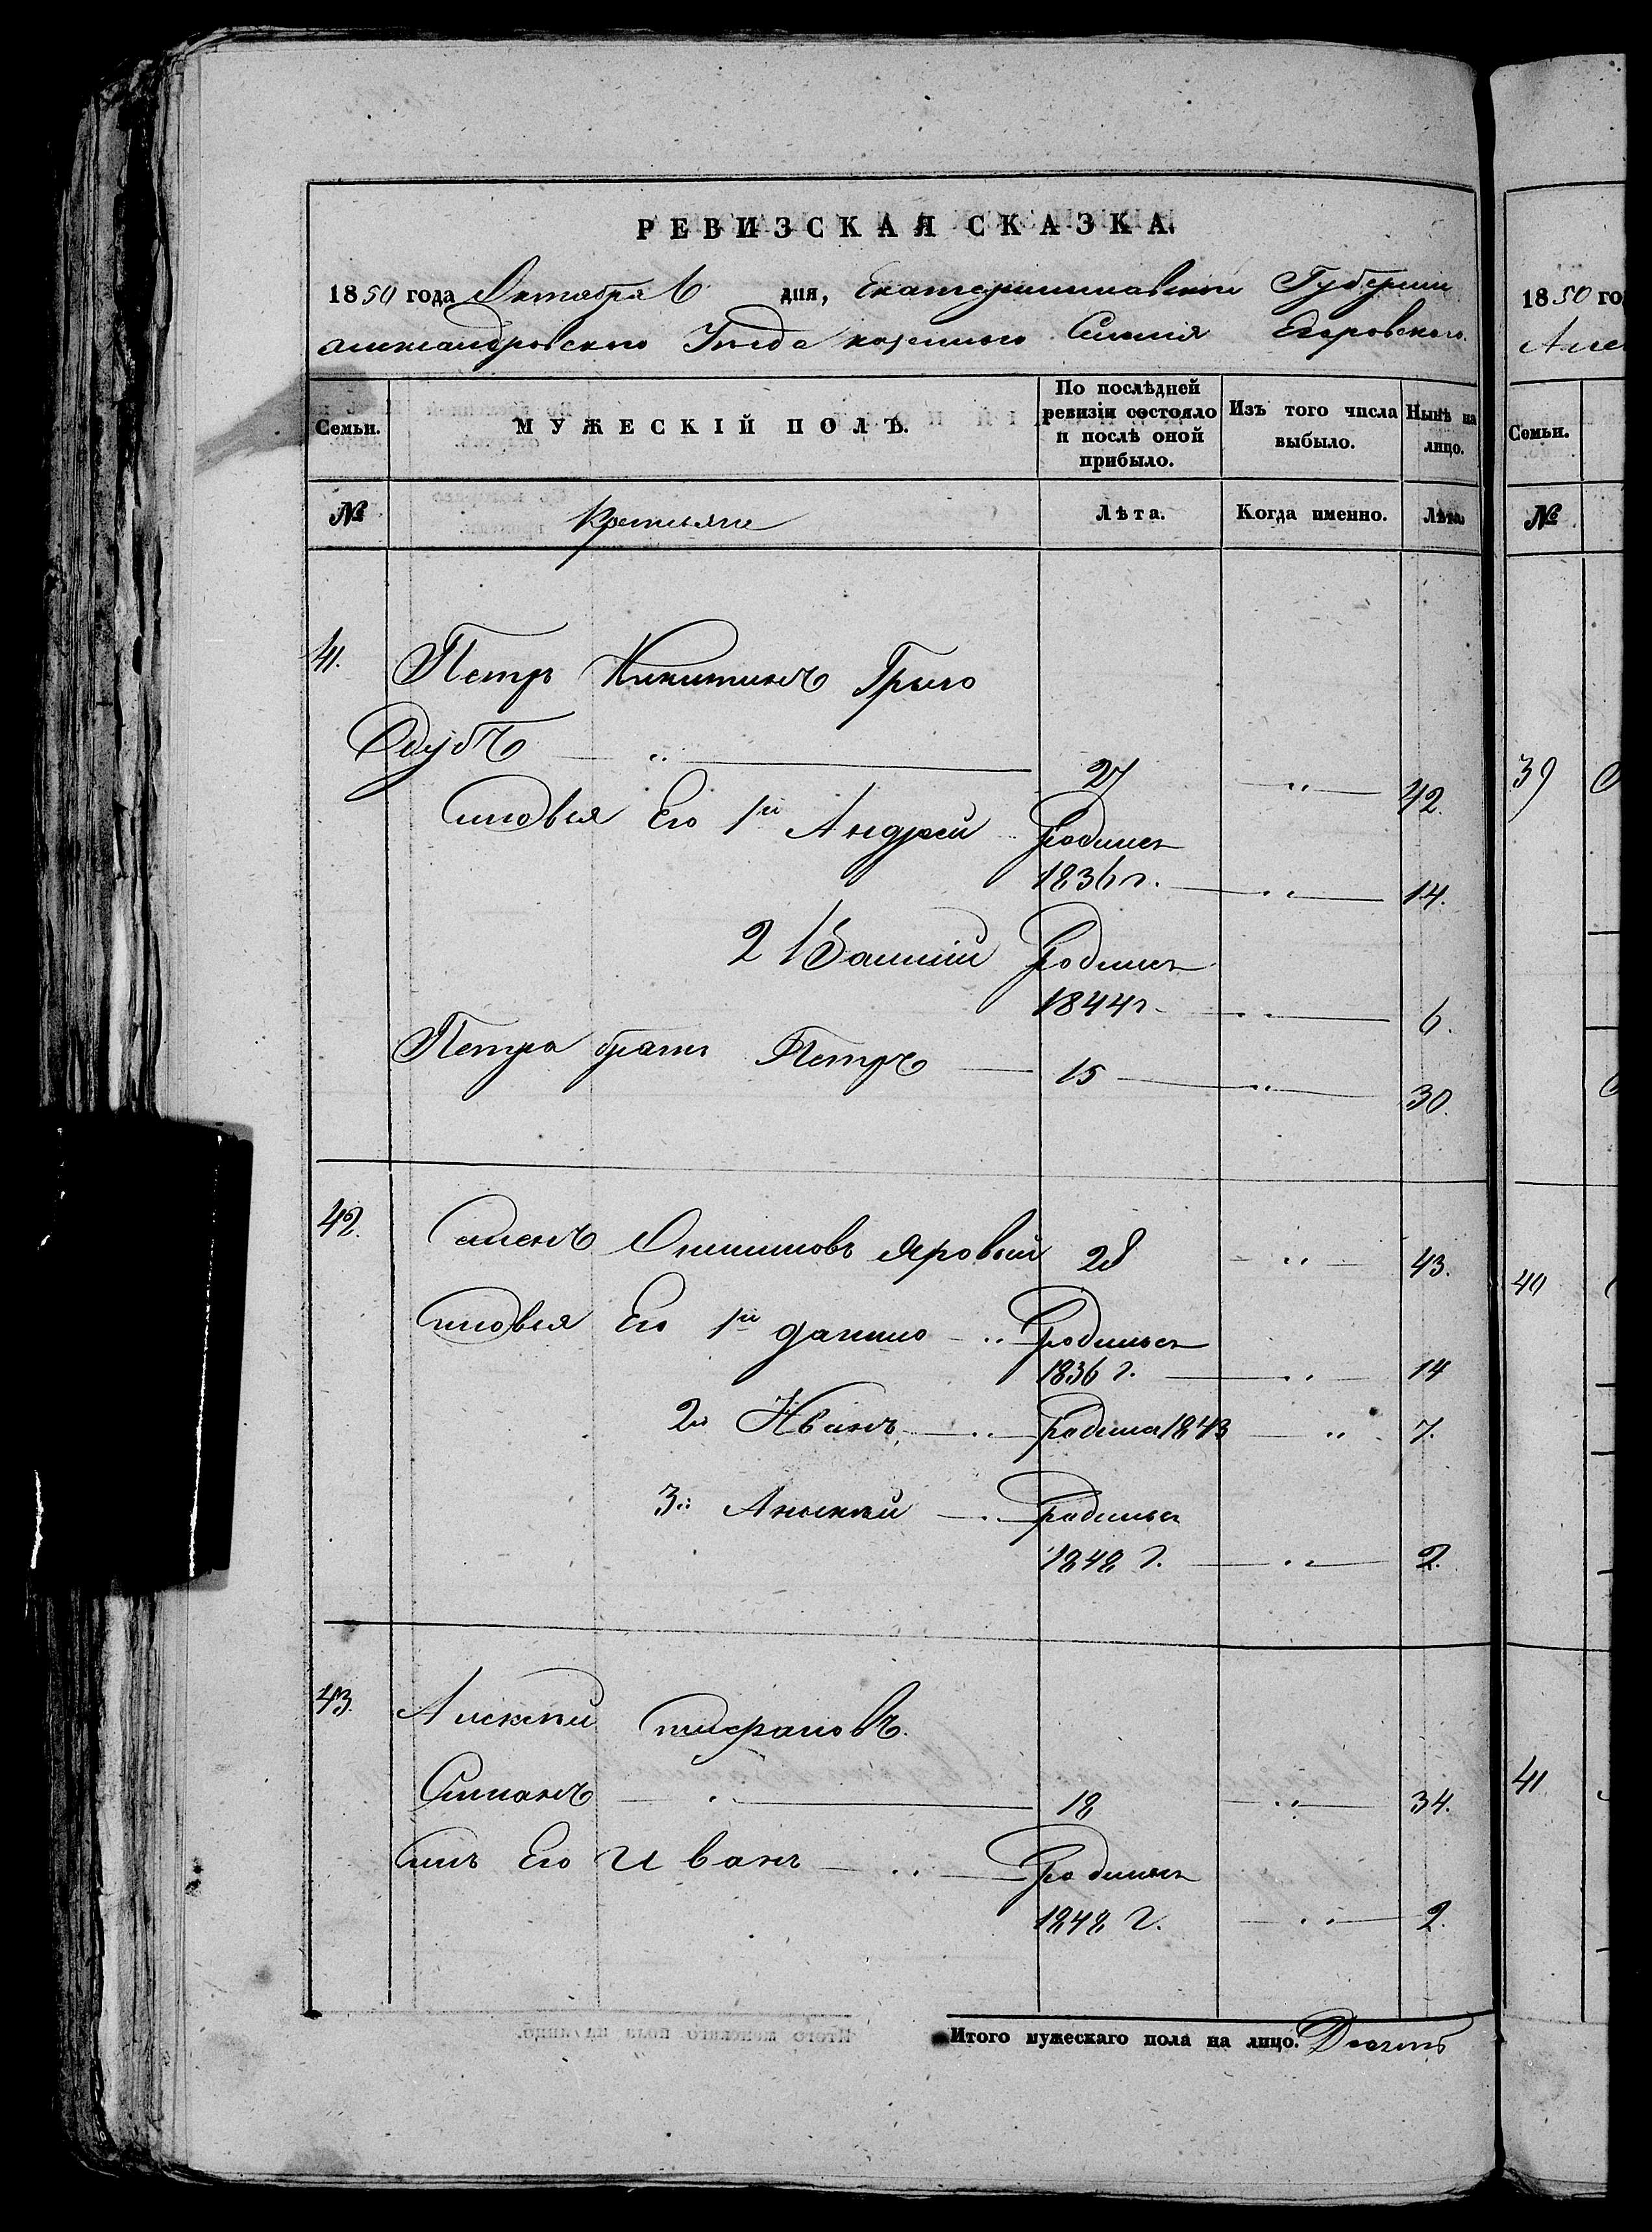 РЕВИЗСКАЯ СКАЗКА.
1850 года Октября 6 дня, Екатеринославской Губернии
Александровского Уезда казенного Селения Егоровского.
Семьи.
МУЖЕСКІЙ ПОЛЪ.
По послѣдней ревизіи состояло и послѣ оной прибыло.
Изъ того числа выбыло.
Нынѣ на лицо.
№
Крестьяне
Лѣта.
Когда именно.
Лѣта.
41. Петръ Никитинъ Грыго
Дубъ 27 42.
сыновья Его 1й Андрей родился
1836 г. 14.
2 Василій родился
1844 г. 6.
Петра братъ Петръ 15 30.
42. Семенъ Яровый 28 43.
сыновья Его 1й данило родился
1836 г. 14
2й Иванъ родился 1843 7.
3й Алексѣй родился
1848 г. 2.
43. Алексѣй
18 34.
сынъ Его Иванъ родился
1848 г. 2.
Итого мужескаго пола на лицо. Десять
1850 го
Але
Семьи.
№
39
40
41